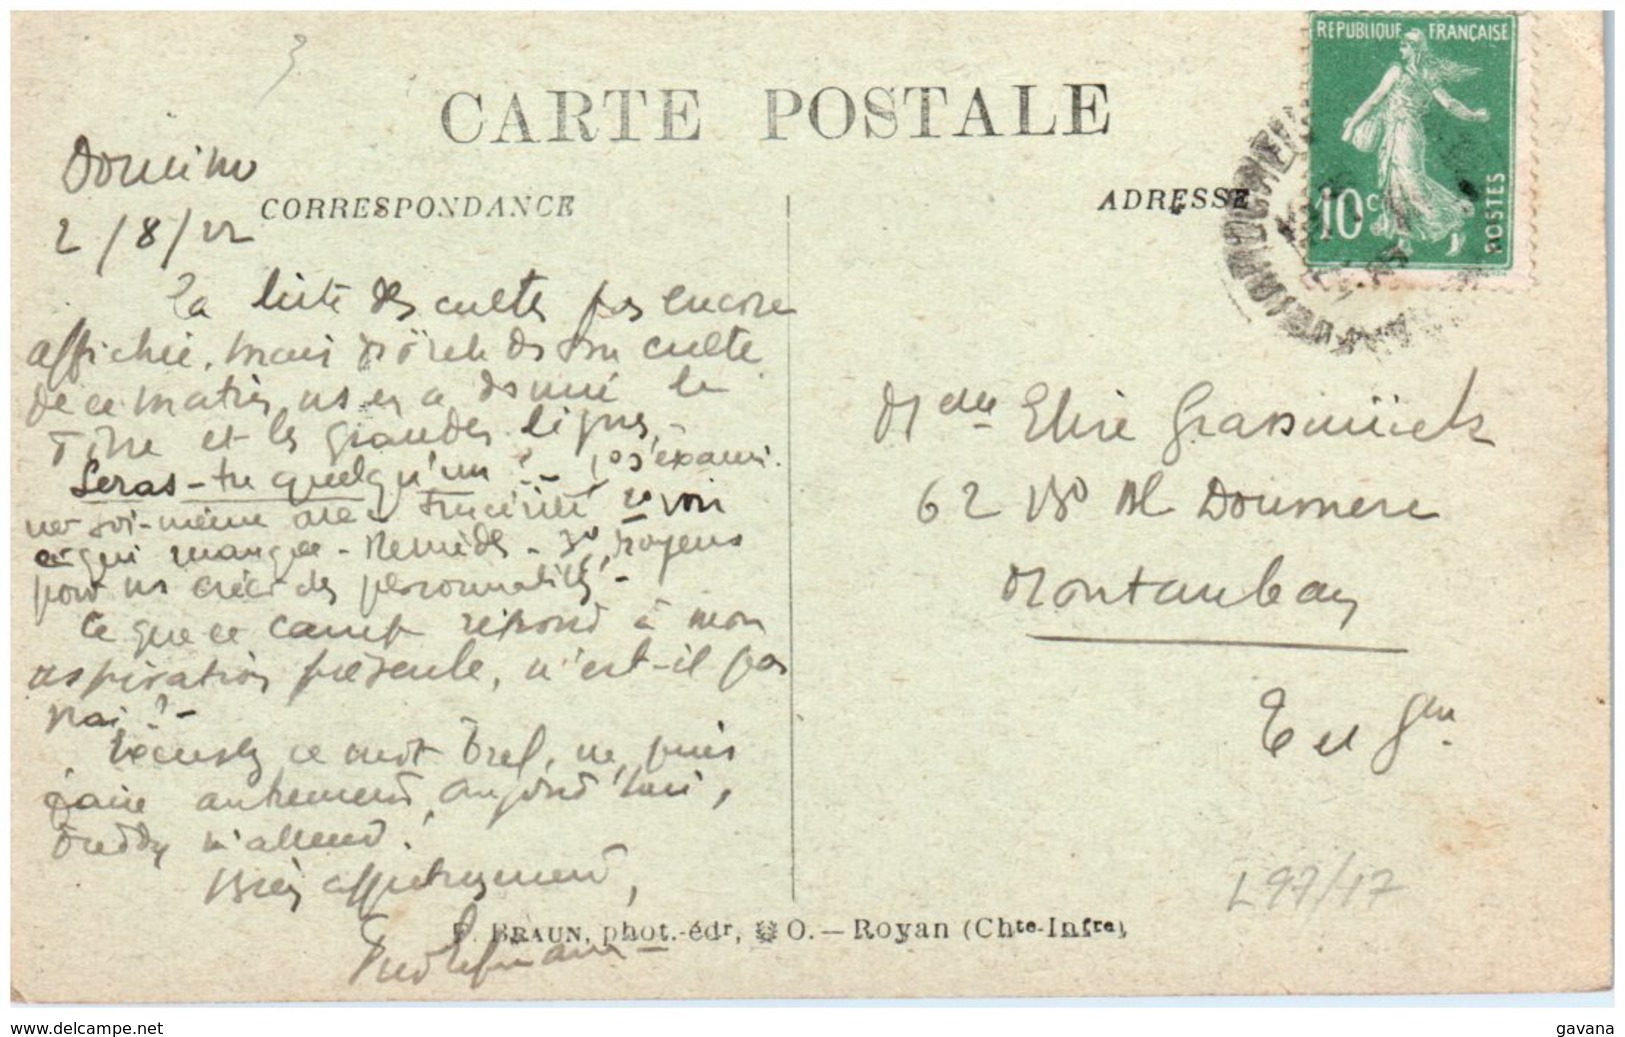 CARTE POSTALE
CORRESPONDANCE
ADRESSE
REPUBLIQUE FRANÇAISE
10c
POSTES
Domino
2/8/22
La liste des cultes pas encore
affichée, mais culte
de ce matin ns en a donné le
titre et les grandes lignes,
Seras-tu quelqu'un ? - 1º s'exami-
ner soi-même avec sincérité 2º voir
ce qui manque - Remèdes - 3º, moyens
pour ns créer des personnalités -
Ce que ce camp répond à mon
aspiration présente, n'est-il pas
vrai ? -
Excusez ce mot bref, ne puis
faire autrement aujourd'hui,
Freddy m'attend !
Bien affectueusement,
Mlle Elise
62 Bd Doumerc
Montauban
T et Gne
L97/17
F. BRAUN, phot.-édr, O. — Royan (Chte-Infre)
www.delcampe.net
gavana